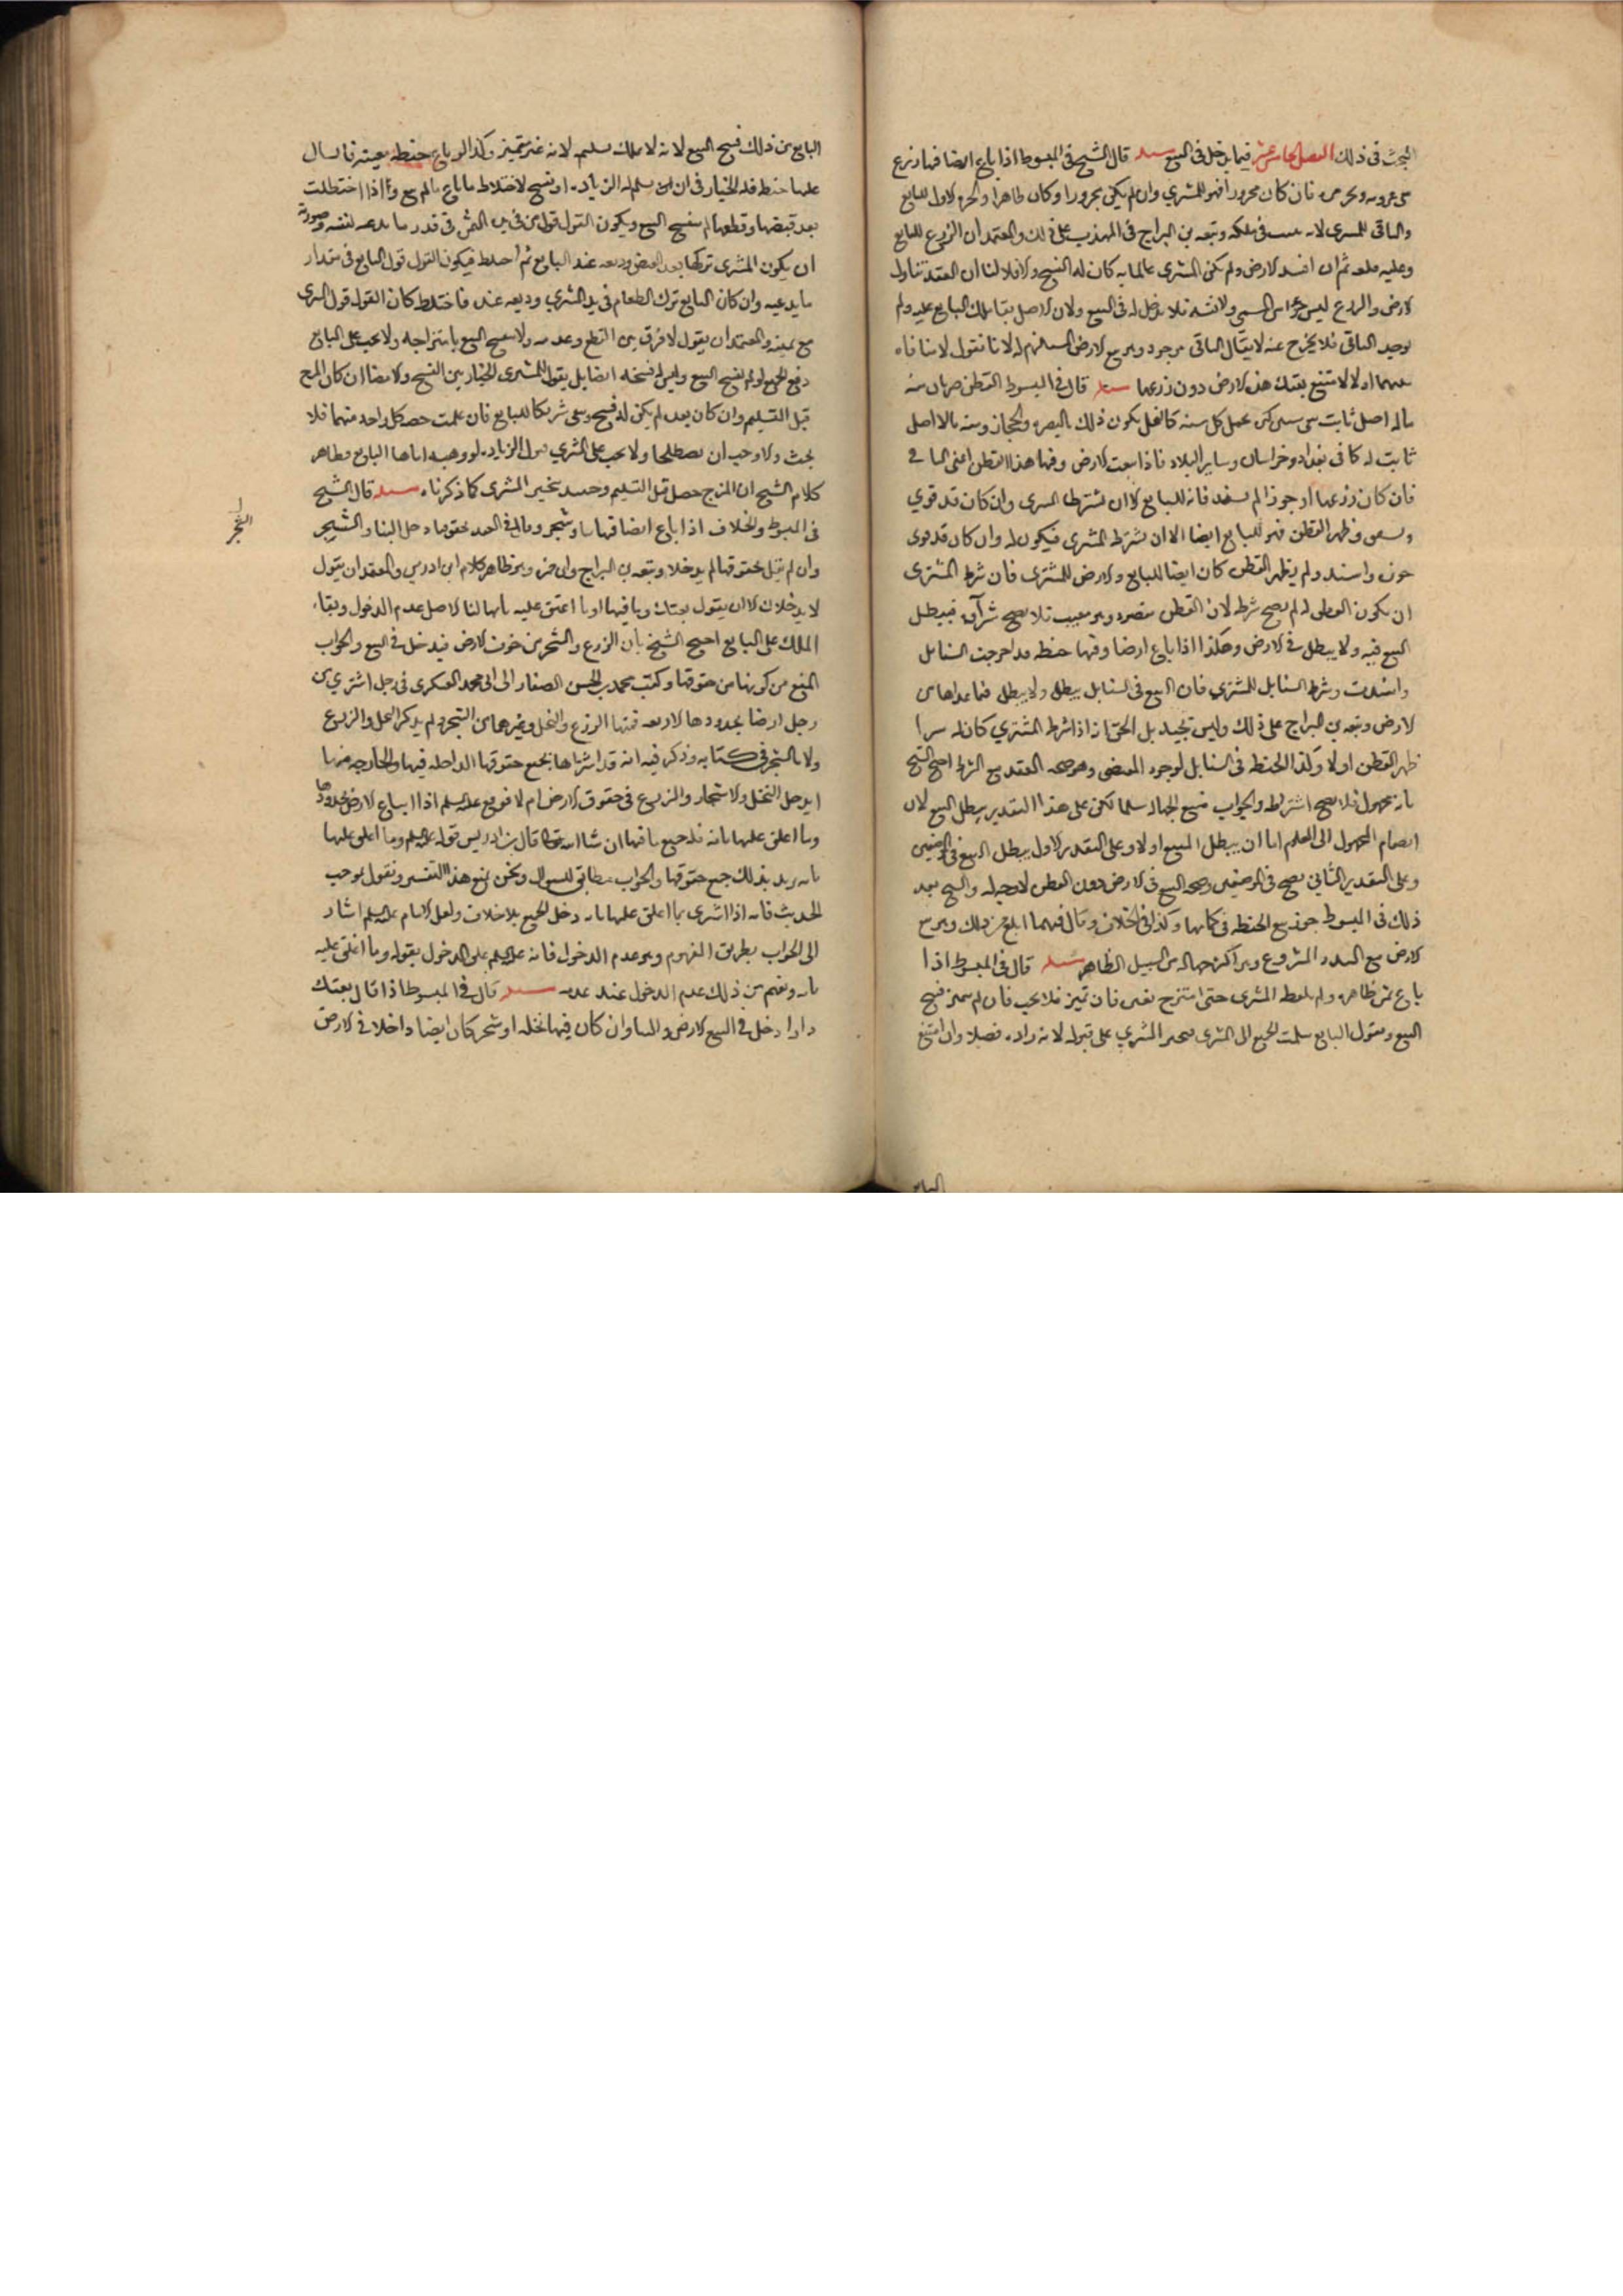 البحث في ذلك الفصل الحادي عشر فيما يدخل في البيع مسئلة قال الشيخ في المبسوط اذا باع ارضا فيها زرع
فان كان مجزورا فهو للمشتري وان لم يكن مجزورا وكان ظاهرا والجزة الاولى للبايع
والباقي للمشتري لانه في ملكه وتبعه بن البراج في المهذب على ذلك والمعتمد ان الزرع للبايع
وعليه قلعه ثم ان افسد الارض ولم يكن المشتري عالما به كان له الفسخ والا فلا لنا ان العقد تناول
الارض والزرع ليس جزءا من المسمى ولا نفسه فلا يدخل له في البيع ولان الاصل بقاء ملك البايع عليه ولم
يوجد الناقل فلا يخرج عنه لا يقال الناقل موجود وهو بيع الارض لانا نقول لا منافاة
بينهما اولا لا متنع بعتك هذه الارض دون زرعها مسئلة قال في المبسوط القطن ضربان منه
ماله اصل ثابت يبقى سنين كثيرة يحمل كل سنة كالنخل يكون ذلك بالبصرة والحجاز ومنه ما لا اصل
ثابت له كما في بغداد وخراسان وساير البلاد فاذا بيعت الارض وفيها هذا القطن اعني
فان كان زرعا او جوزا لم يشتد فانه للبايع الا ان يشترط المشتري وان كان قد قوي
وظهر القطن فهو للبايع ايضا الا ان يشترط المشتري فيكون له وان كان قد قوى
جوزه واشتد ولم يظهر القطن كان ايضا للبايع والارض للمشتري فان شرط المشتري
ان يكون القطن له لم يصح شرطه لان القطن مقصود وهو مغيب فلا يصح شراؤه فيبطل
البيع فيه ولا يبطل في الارض وهكذا اذا باع ارضا وفيها حنطة قد اخرجت السنابل
واشتدت وشرط السنابل للمشتري فان البيع في السنابل يبطل ولا يبطل فيما عداها من
الارض وتبعه بن البراج على ذلك وليس بجيد بل الحق انه اذا شرط المشتري كان له سواء
ظهر القطن اولا وكذا الحنطة في السنابل لوجود المقتضي وهو صحة العقد مع الشرط احتج الشيخ
بانه مجهول فلا يصح اشتراطه والجواب منع الجهالة سلمنا لكن على هذا التقدير يبطل البيع لان
انضمام المجهول الى المعلوم اما ان يبطل المبيع اولا وعلى التقدير الاول يبطل البيع في الموضعين
وعلى التقدير الثاني يصح في الموضعين وصحة البيع في الارض دون القطن لا وجه له والشيخ بعد
ذلك في المبسوط جوز بيع الحنطة في كمامها وكذا في الخلاف وقال فيهما ابلغ من ذلك وهو بيع
الارض مع البذر المزروع وهو اكثر جهالة من السنبل الظاهر مسئلة قال في المبسوط اذا
باع ثمرة ظاهرة ولم يلقط المشتري حتى امتزج بغيره فان تميز فلا بحث فان لم يتميز فسخ
البيع او يقول البايع سلمت الجميع الى المشتري فيجبر المشتري على قبوله لانه زاده فضلا وان امتنع
البايع
البايع من ذلك فسخ البيع لانه لا يملك تسليمه لانه غير متميز وكذا لو باع حنطة بعينه فانثال
عليها حنطة فله الخيار في ان يسلم له الزيادة او يفسخ لاختلاط ما باع بما لم يبع واذا اختلطت
بعد قبضها وقطعها لم ينفسخ البيع ويكون القول قول من في يده الثمن في قدر ما يدعيه لنفسه وصورته
ان يكون المشتري تركها بعد القبض وديعة عند البايع ثم اختلط فيكون القول قول البايع في مقدار
ما يدعيه وان كان البايع ترك الطعام في يد المشتري وديعة عنده فاختلط كان القول قول المشتري
مع يمينه والمعتمد ان يقول لا فرق بين القطع وعدمه ولا ينفسخ البيع بامتزاجه ولا يجب على البايع
دفع الجميع لو لم يفسخ البيع وليس له فسخه ايضا بل يقول للمشتري الخيار بين الفسخ والامضاء ان كان المزج
قبل التسليم وان كان بعده لم يكن له فسخ وبقى شريكا للبايع فان علمت حصة كل واحد منهما فلا
بحث والا وجب ان يصطلحا ولا يجب على المشتري قبول الزيادة لو وهبه اياها البايع وظاهر
كلام الشيخ ان المزج حصل قبل التسليم وحينئذ يتخير المشتري كما ذكرناه مسئلة قال الشيخ
في المبسوط والخلاف اذا باع ارضا فيها بناء وشجر وقال في العقد بحقوقها دخل البناء والشجر
وان لم يقل بحقوقها لم يدخلا وتبعه بن البراج وابن حمزة وهو ظاهر كلام ابن ادريس والمعتمد ان يقول
لا يدخلان الا ان يقول بعتك وما فيها او ما اغلق عليه بابها لنا الاصل عدم الدخول وبقاء
الملك على البايع احتج الشيخ بان الزرع والشجر من حقوق الارض فيدخل في البيع والجواب
المنع من كونها من حقوقها وكتب محمد بن الحسن الصفار الى ابي محمد العسكري في رجل اشترى من
رجل ارضا بحدودها الاربعة فيها الزرع والنخل وغيرهما من الشجر ولم يذكر النخل والزرع
ولا الشجر في كتابه وذكر فيه انه قد اشتراها بجميع حقوقها الداخلة فيها والخارجة منها
ايدخل النخل والاشجار والزرع في حقوق الارض ام لا فوقع عليه السلم اذا ابتاع الارض بحدودها
وما اغلق عليها بابه فله جميع ما فيها ان شاء الله تعالى قال بن ادريس قوله عليه السلم وما اغلق عليها
بابه يريد بذلك جميع حقوقها والجواب مطابق للسؤال ونحن نمنع هذا التفسير ونقول بموجب
الحديث فانه اذا اشترى بما اغلق عليها بابه دخل الجميع بلا خلاف ولعل الامام عليه السلم اشار
الى الجواب بطريق المفهوم وهو عدم الدخول فانه عليه السلم علق الدخول بقوله وما اغلق عليه
بابه وتفهم من ذلك عدم الدخول عند عدمه مسئلة قال في المبسوط اذا قال بعتك
دارا دخل في البيع الارض والبناء وان كان فيها نخلة او شجر كان ايضا داخلا في الارض
الشجر